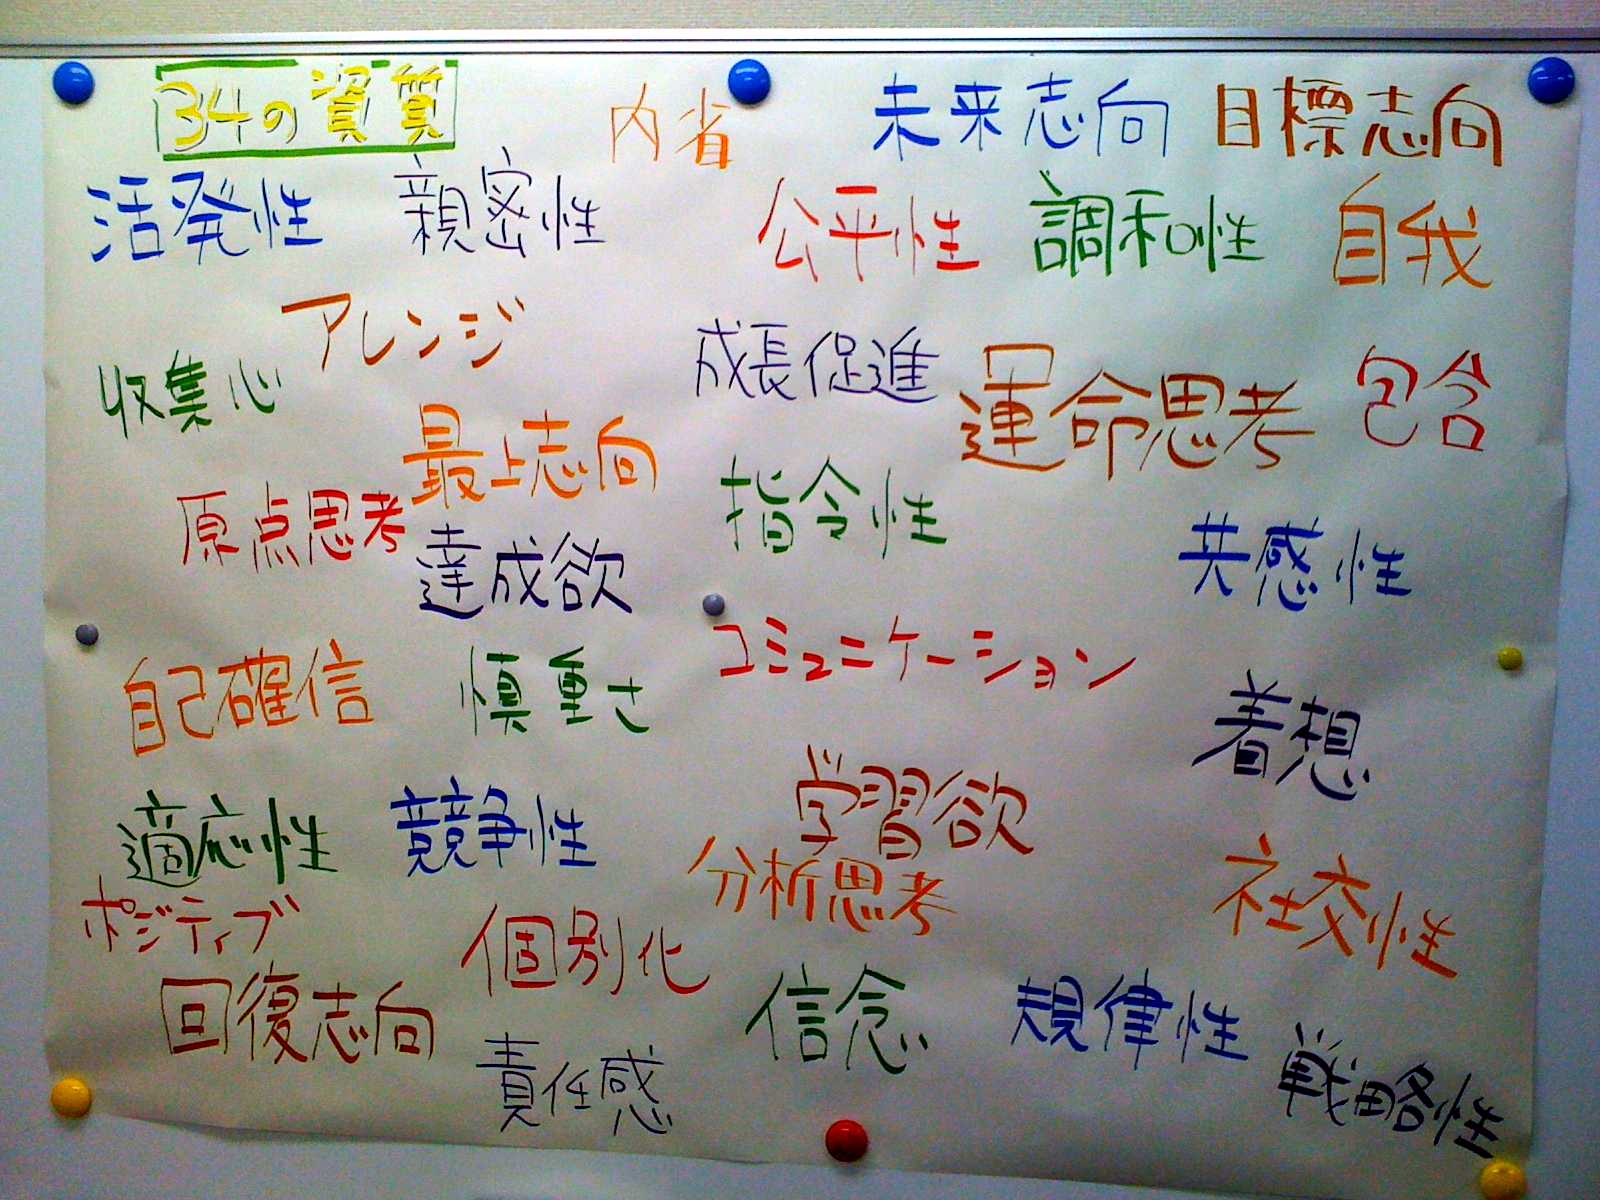 34の資質
内省
未来志向
目標志向
活発性
親密性
公平性
調和性
自我
アレンジ
収集心
成長促進
運命思考
包含
最上志向
原点思考
指令性
達成欲
共感性
コミュニケーション
自己確信
慎重さ
着想
学習欲
適応性
競争性
分析思考
社交性
ポジティブ
個別化
回復志向
信念
規律性
責任感
戦略性